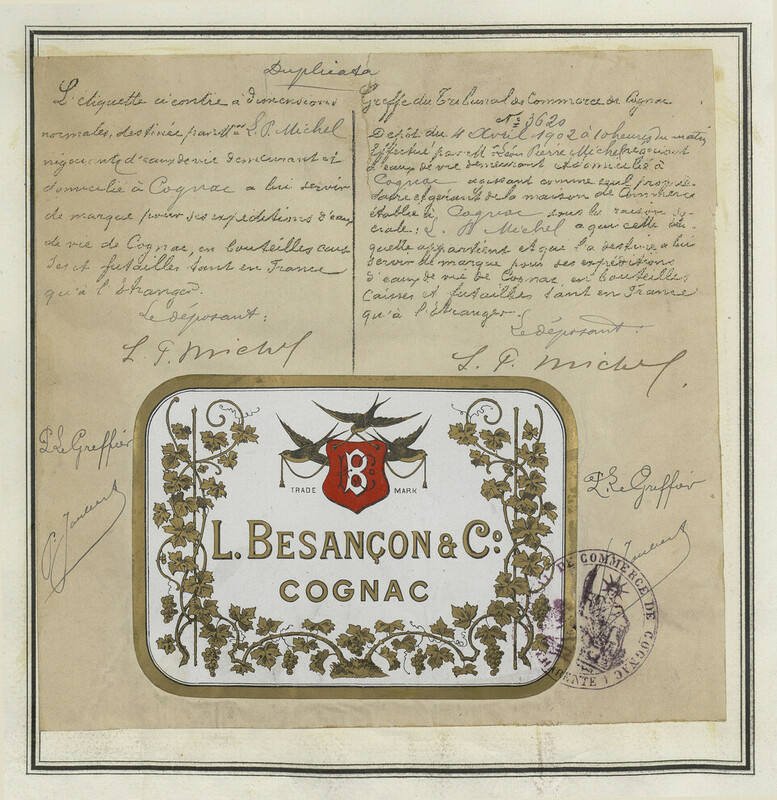 Duplicata
L'étiquette ci contre à dimensions
normales, destinée par Mr L. P. Michel
négociant d'eaux de vie demeurant et
domicilié à Cognac a lui servir
de marque pour ses expéditions d'eaux
de vie de Cognac, en bouteilles cais
ses et futailles tant en France
qu'à l'Etranger.
Le déposant:
L. P. Michel
Greffe du Tribunal de Commerce de Cognac
No 3620
Dépôt du 4 Avril 1902 à 10 heures du matin
Effectué par M. Léon Pierre Michel négociant
d'eaux de vie demeurant et domicilié à
Cognac agissant comme seul proprié-
taire et gérant de la maison de Commerce
établie à Cognac sous la raison so-
ciale: L. P. Michel a qui cette éti-
quette appartient et que l'a destine a lui
servir de marque pour ses expéditions
d'eaux de vie de Cognac, en bouteilles,
Caisses et futailles tant en France
qu'à l'Etranger.
Le déposant:
L. P. Michel
P. Le Greffier
P. Le Greffier
B & Co
TRADE MARK
L. BESANÇON & Co.
COGNAC
DE COMMERCE DE COGNAC